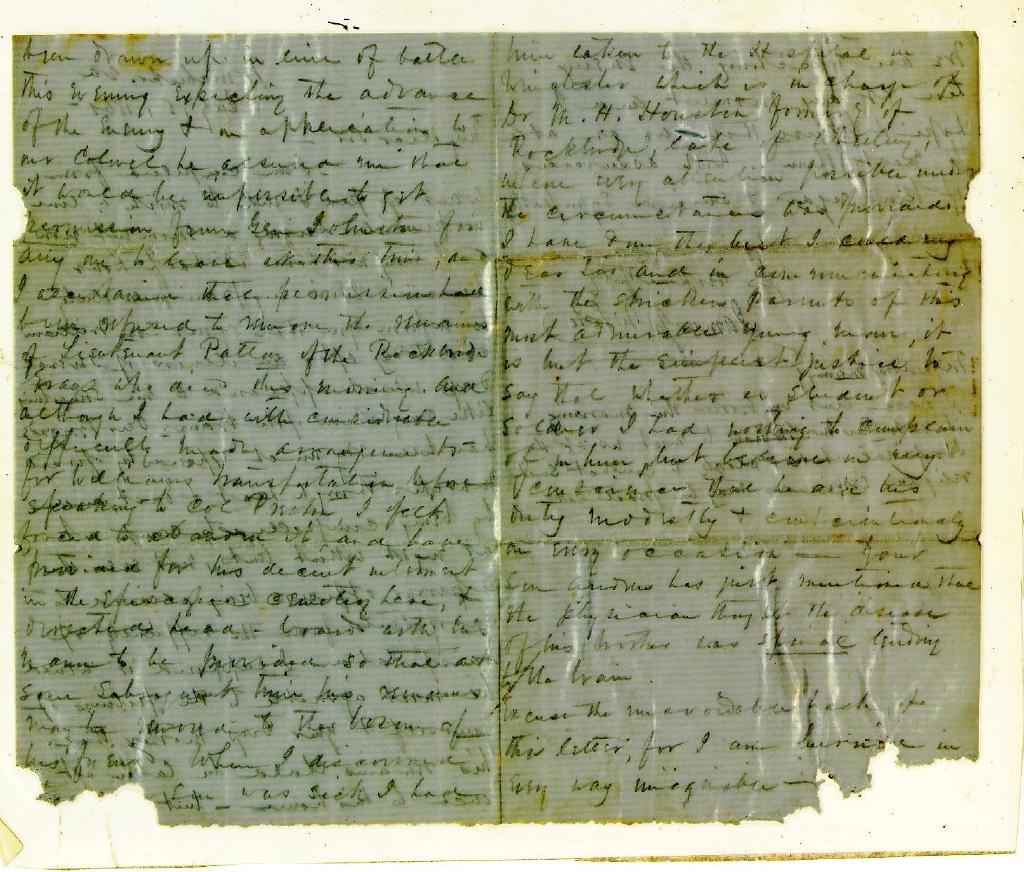 been drawn up in line of battle
this evening expecting the advance
of the Enemy & on application to
our Colonel he assured me that
it would be impossible to get
permission from Gen Johnston for
any one to leave at this time, and
I ascertained that permission had
been refused to remove the remains
of Lieutenant Patton of the Rockbridge
who died this morning. and
although I had with considerable
difficulty made arrangements
for Williams transportation before
speaking to Col Preston I felt
forced to abandon it, and have
provided for his decent interment
in the Episcopal Cemetery here, &
directed a head-board with his
name to be provided so that at
some subsequent time his remains
may be moved to the
his friends. When I discovered
was sick I had
him taken to the Hospital in
Winchester which is in charge of
Dr M. H. Houston formerly of
Rockbridge, late of Wheeling,
where every attention possible under
the circumstances was provided.
I have done the best I could my
Dear and in communicating
with the stricken parents of this
most admirable young man, it
is but the simplest justice to
say that whether as Student or
Soldier I had nothing to complain
of in him, but believe in my
Conscience that he did his
duty modestly & conscientiously
on every occasion — Your
Son Andrew has just mentioned that
the physician thought the disease
of his brother was spinal tending
to the brain.
Excuse the unavoidable haste of
this letter, for I am hurried in
every way imaginable —